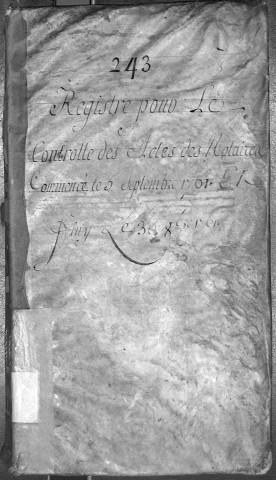 243
Registre pour Le
Controlle des Actes des Notaires
Commencé le 9 Septembre 1701 Et
finy Le 31